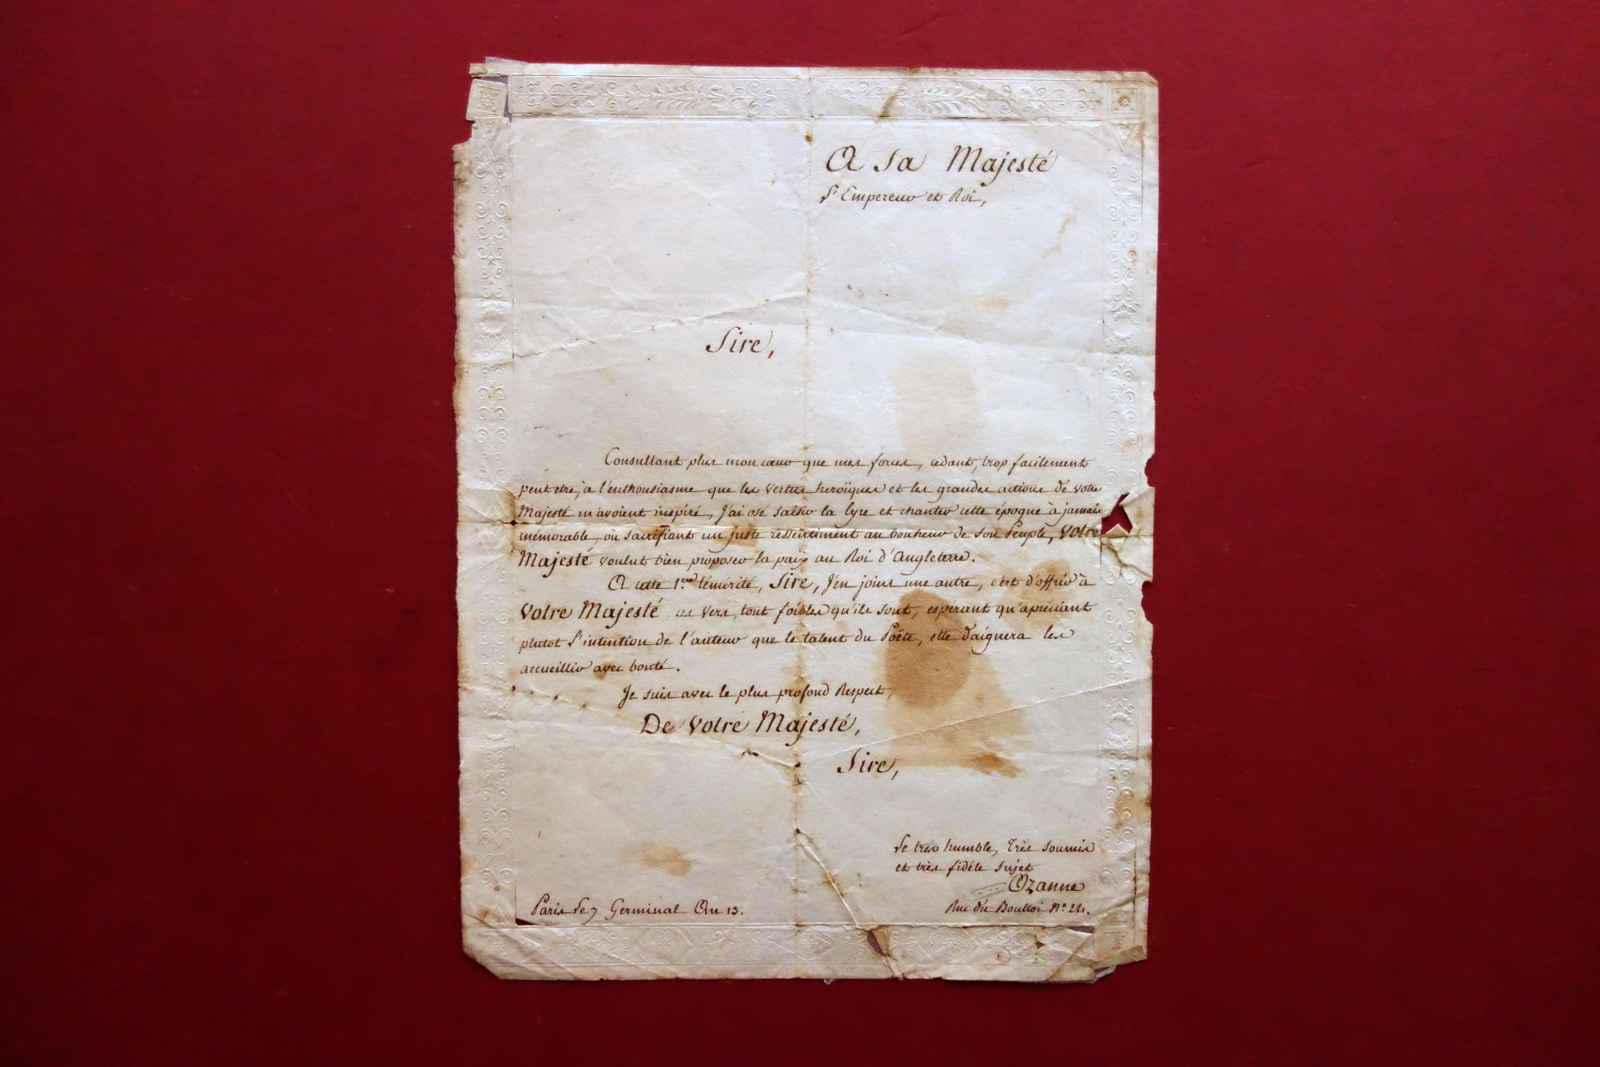 A Sa Majesté
L'Empereur et Roi,
Sire,
Consultant plus mon cœur que mes forces, cédant, trop facilement
peut etre, à l'enthousiasme que les vertus heroïques et les grandes actions de votre
Majesté m'avoient inspiré, j'ai osé saisir la lyre et chanter cette époque à jamais
mémorable, où sacrifiant un juste ressentiment au bonheur de son Peuple, Votre
Majesté voulut bien proposer la paix au Roi d'Angleterre.
A cette 1.ere témérité, Sire, j'en joins une autre, c'est d'offrir à
Votre Majesté ces vers, tout foibles qu'ils sont, espérant qu'apréciant
plutot l'intention de l'auteur que le talent du Poëte, elle daignera les
accueillir avec bonté.
Je suis avec le plus profond Respect,
De Votre Majesté,
Sire,
Le très humble, très soumis
et très fidèle sujet
Ozanne
Paris le 7 Germinal An 13.
Rue du Bouloi N° 24.